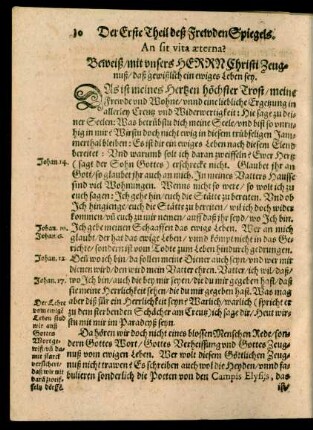 10 Der Erste Theil deß Frewden Spiegels.
An sit vita æterna?
Beweiß / mit unsers HERRN Christi Zeug-
nuß / daß gewißlich ein ewiges Leben sey.
DAs ist meines Hertzen höchster Trost / meine
Frewde vnd Wohne / vnnd eine liebliche Ergetzung in
allerley Creutz vnd Widerwertigkeit: Ich sage zu dei-
ner Seelen: Was betrübstu dich meine Seele / vnd bist so vnru-
hig in mir? Wirstu doch nicht ewig in diesem trübseligen Jam-
merthal bleiben: Es ist dir ein ewiges Leben nach diesem Elend
bereitet: Vnd warumb solt ich daran zweiffeln? Ewer Hertz
Johan. 14. (sagt der Sohn Gottes) erschrecke nicht. Glaubet jhr an
Gott / so glaubet jhr auch an mich. In meines Vatters Hausse
sind viel Wohnungen. Wenns nicht so were / so wolt ich zu
euch sagen: Ich gehe hin / euch die Stätte zu bereiten. Vnd ob
Ich hingienge / euch die Stätte zu bereiten / wil ich doch wider
kommen / vñ euch zu mir nemen / auff daß jhr seyd / wo Ich bin.
Johan. 10. Ich gebe meinen Schaaffen das ewige Leben. Wer an mich
Johan. 6. glaubt / der hat das ewige Leben / vnnd kömpt nicht in das Ge-
richte / sondern ist vom Todte zum Leben hindurch gedrungen.
Johan. 12. Den wo ich bin / da sollen meine Diener auch seyn / vnd wer mir
dienen wird / den wird mein Vatter ehren. Vatter / ich wil / daß /
Johan. 17. wo Ich bin / auch die bey mir seyn / die du mir gegeben hast / daß
sie meine Herrlichkeit sehen / die du mir gegeben hast. Was mag
Der Lehre aber diß für ein Heerlichkeit seyn? Warlich / warlich (spricht er
vom ewigẽ zu dem bussfertigen Schächer am Creutz) ich sage dir / Heut wir-
Leben sind stu mit mir im Paradeyß seyn.
wir auß
Gottes Da hören wir doch nicht eines blossen Menschen Rede / son-
Wort ge-
wiß / vñ da- dern Gottes Wort / Gottes Verheissung vnd Gottes Zeug-
mit starck nuß vom ewigen Leben. Wer wolt diesem Göttlichen Zeug-
versichert / nuß nicht trawen? Es schreiben auch wol die Heyden / vnnd fa-
daß wir nit bulieren sonderlich die Poeten von den Campis Elysijs, das